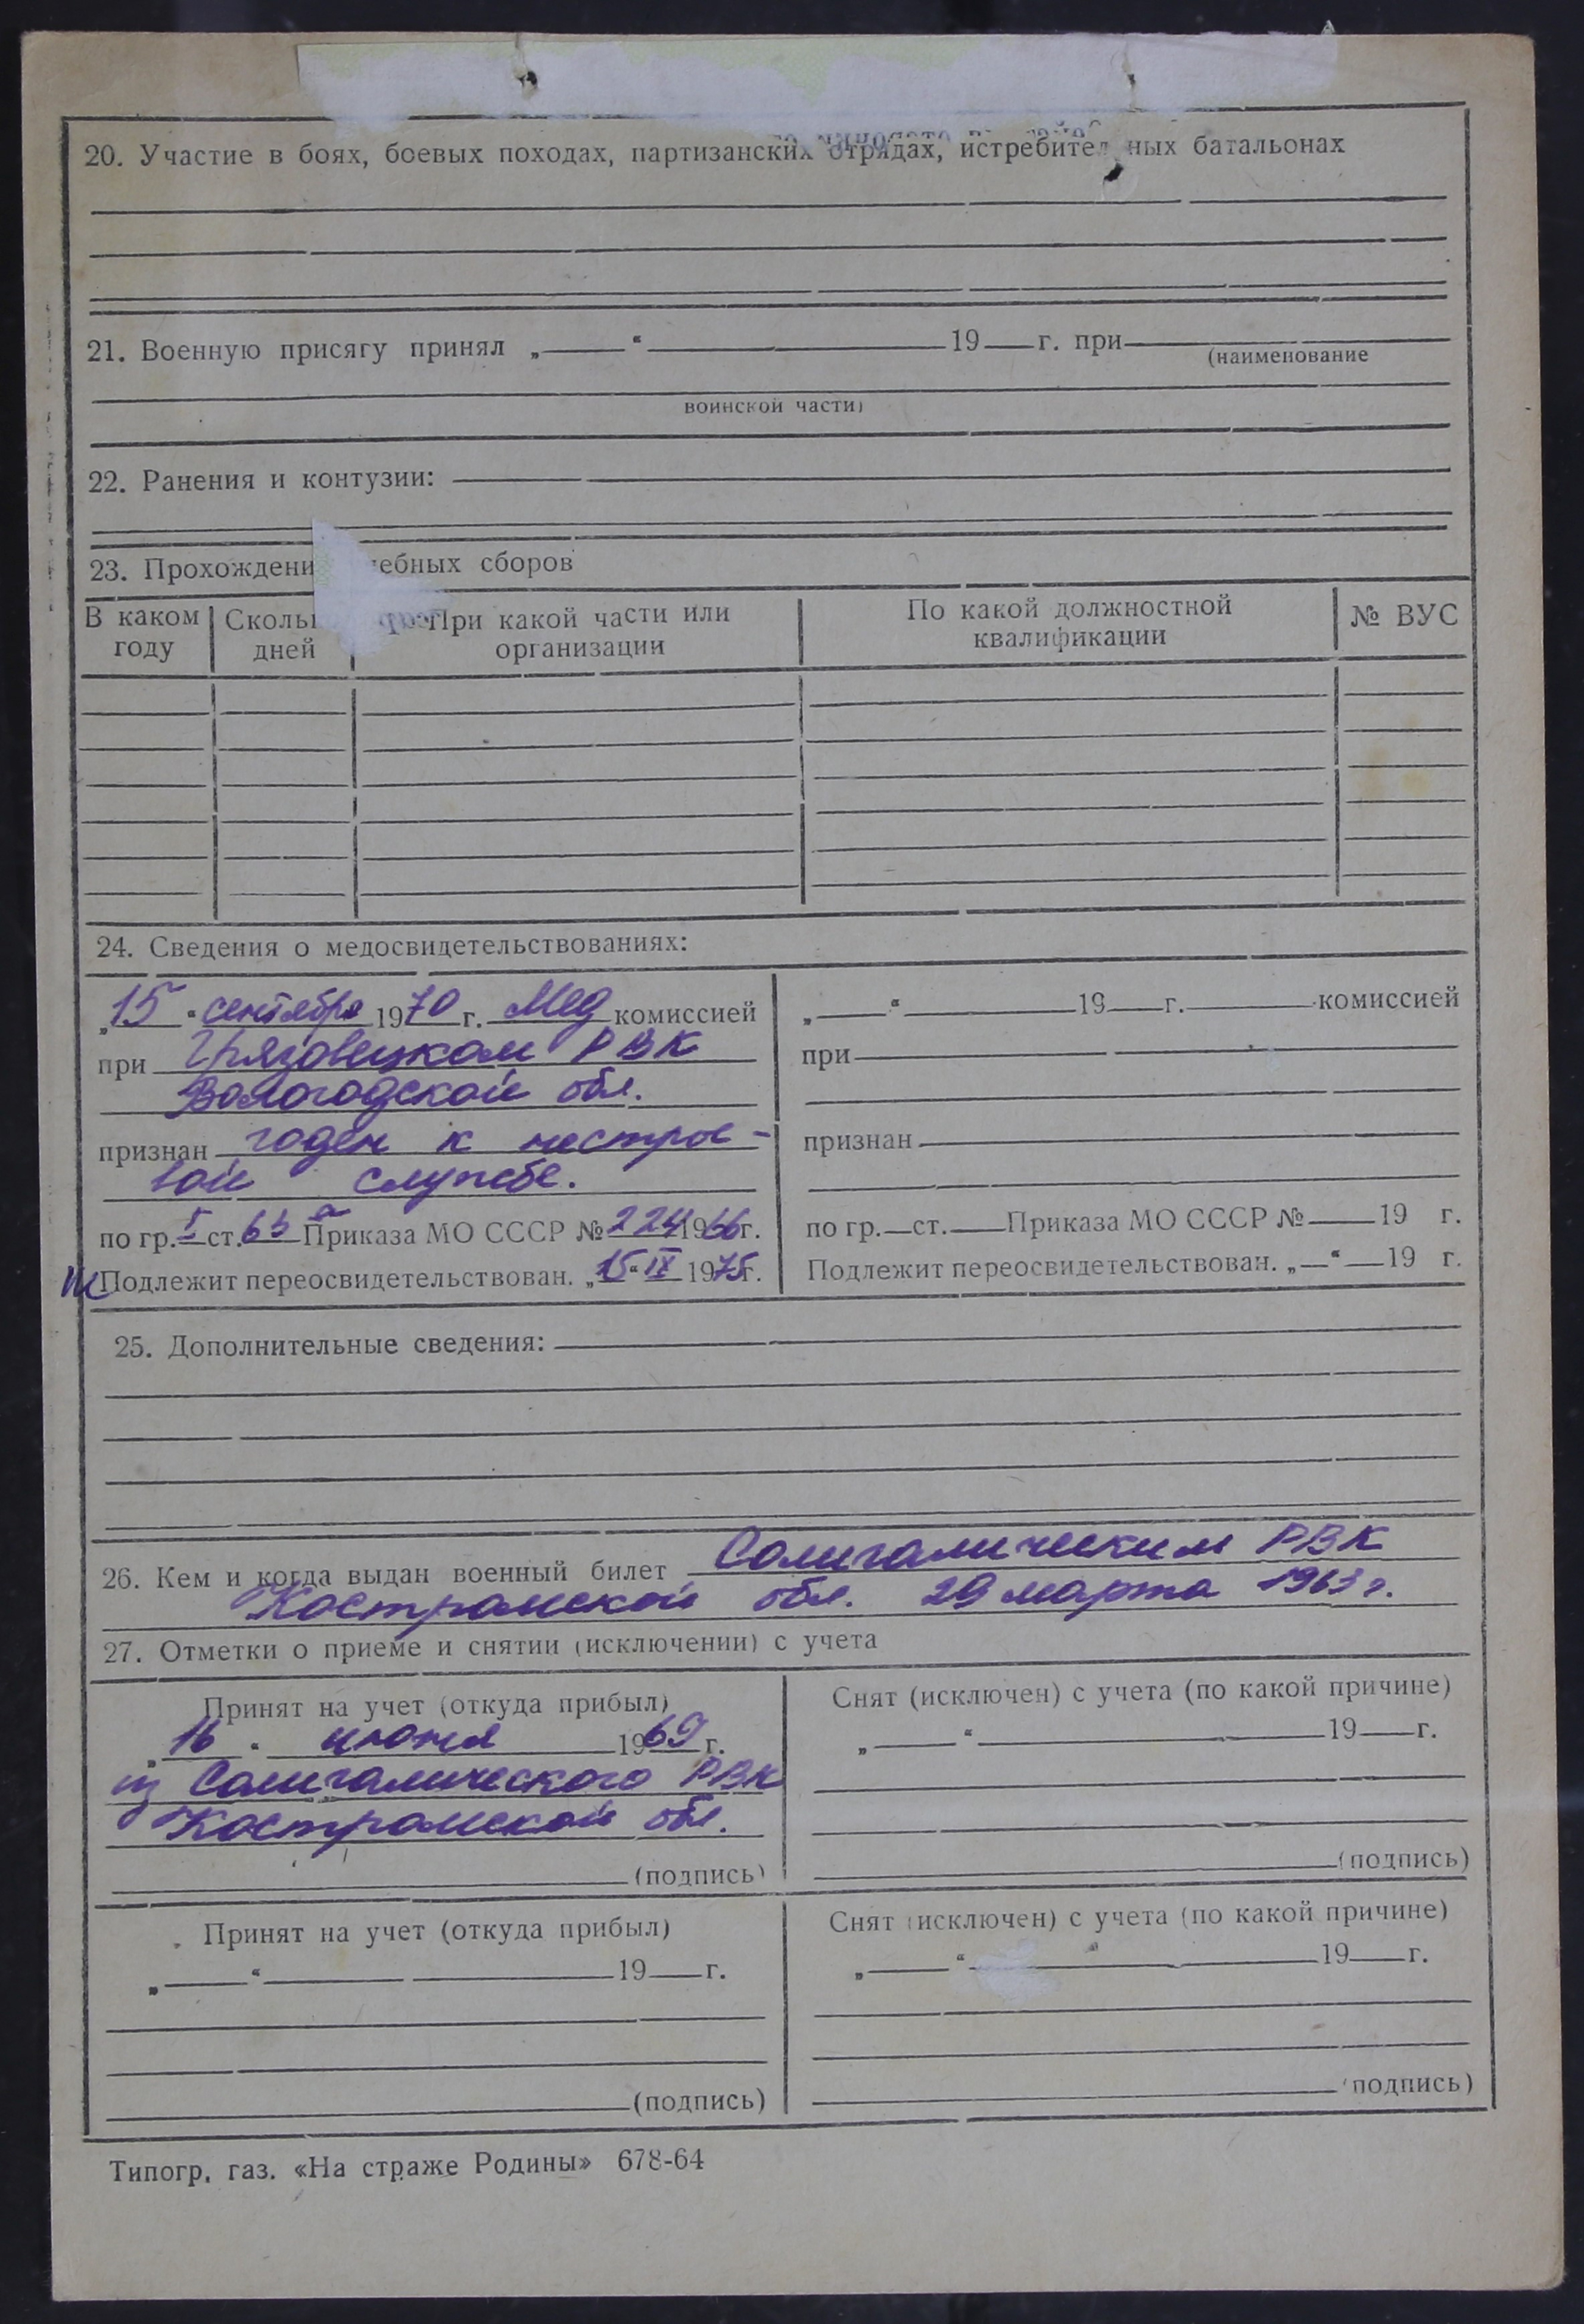 20. Участие в боях, боевых походах, партизанских отрядах, истребител ных батальонах
21. Военную присягу принял „ “ 19 г. при
(наименование
воинской части)
22. Ранения и контузии:
23. Прохождени ебных сборов
В каком году
Сколь дней
При какой части или организации
По какой должностной квалификации
№ ВУС
24. Сведения о медосвидетельствованиях:
„15“ сентября 1970 г. Мед комиссией
при Грязовецком РВК
Вологодской обл.
признан годен к нестрое-
вой службе.
по гр. I ст. 63а Приказа МО СССР № 224 1966г.
Подлежит переосвидетельствован. „15“ IX 1975г.
„ “ 19 г. комиссией
при
признан
по гр. ст. Приказа МО СССР № 19 г.
Подлежит переосвидетельствован. „ “ 19 г.
25. Дополнительные сведения:
26. Кем и когда выдан военный билет Солигаличским РВК
Костромской обл. 29 марта 1963 г.
27. Отметки о приеме и снятии (исключении) с учета
Принят на учет (откуда прибыл)
„16“ июня 1969 г.
из Солигалического РВК
Костромской обл.
(подпись)
Снят (исключен) с учета (по какой причине)
„ “ 19 г.
(подпись)
Принят на учет (откуда прибыл)
„ “ 19 г.
(подпись)
Снят (исключен) с учета (по какой причине)
„ “ 19 г.
(подпись)
Типогр. газ. «На страже Родины» 678-64